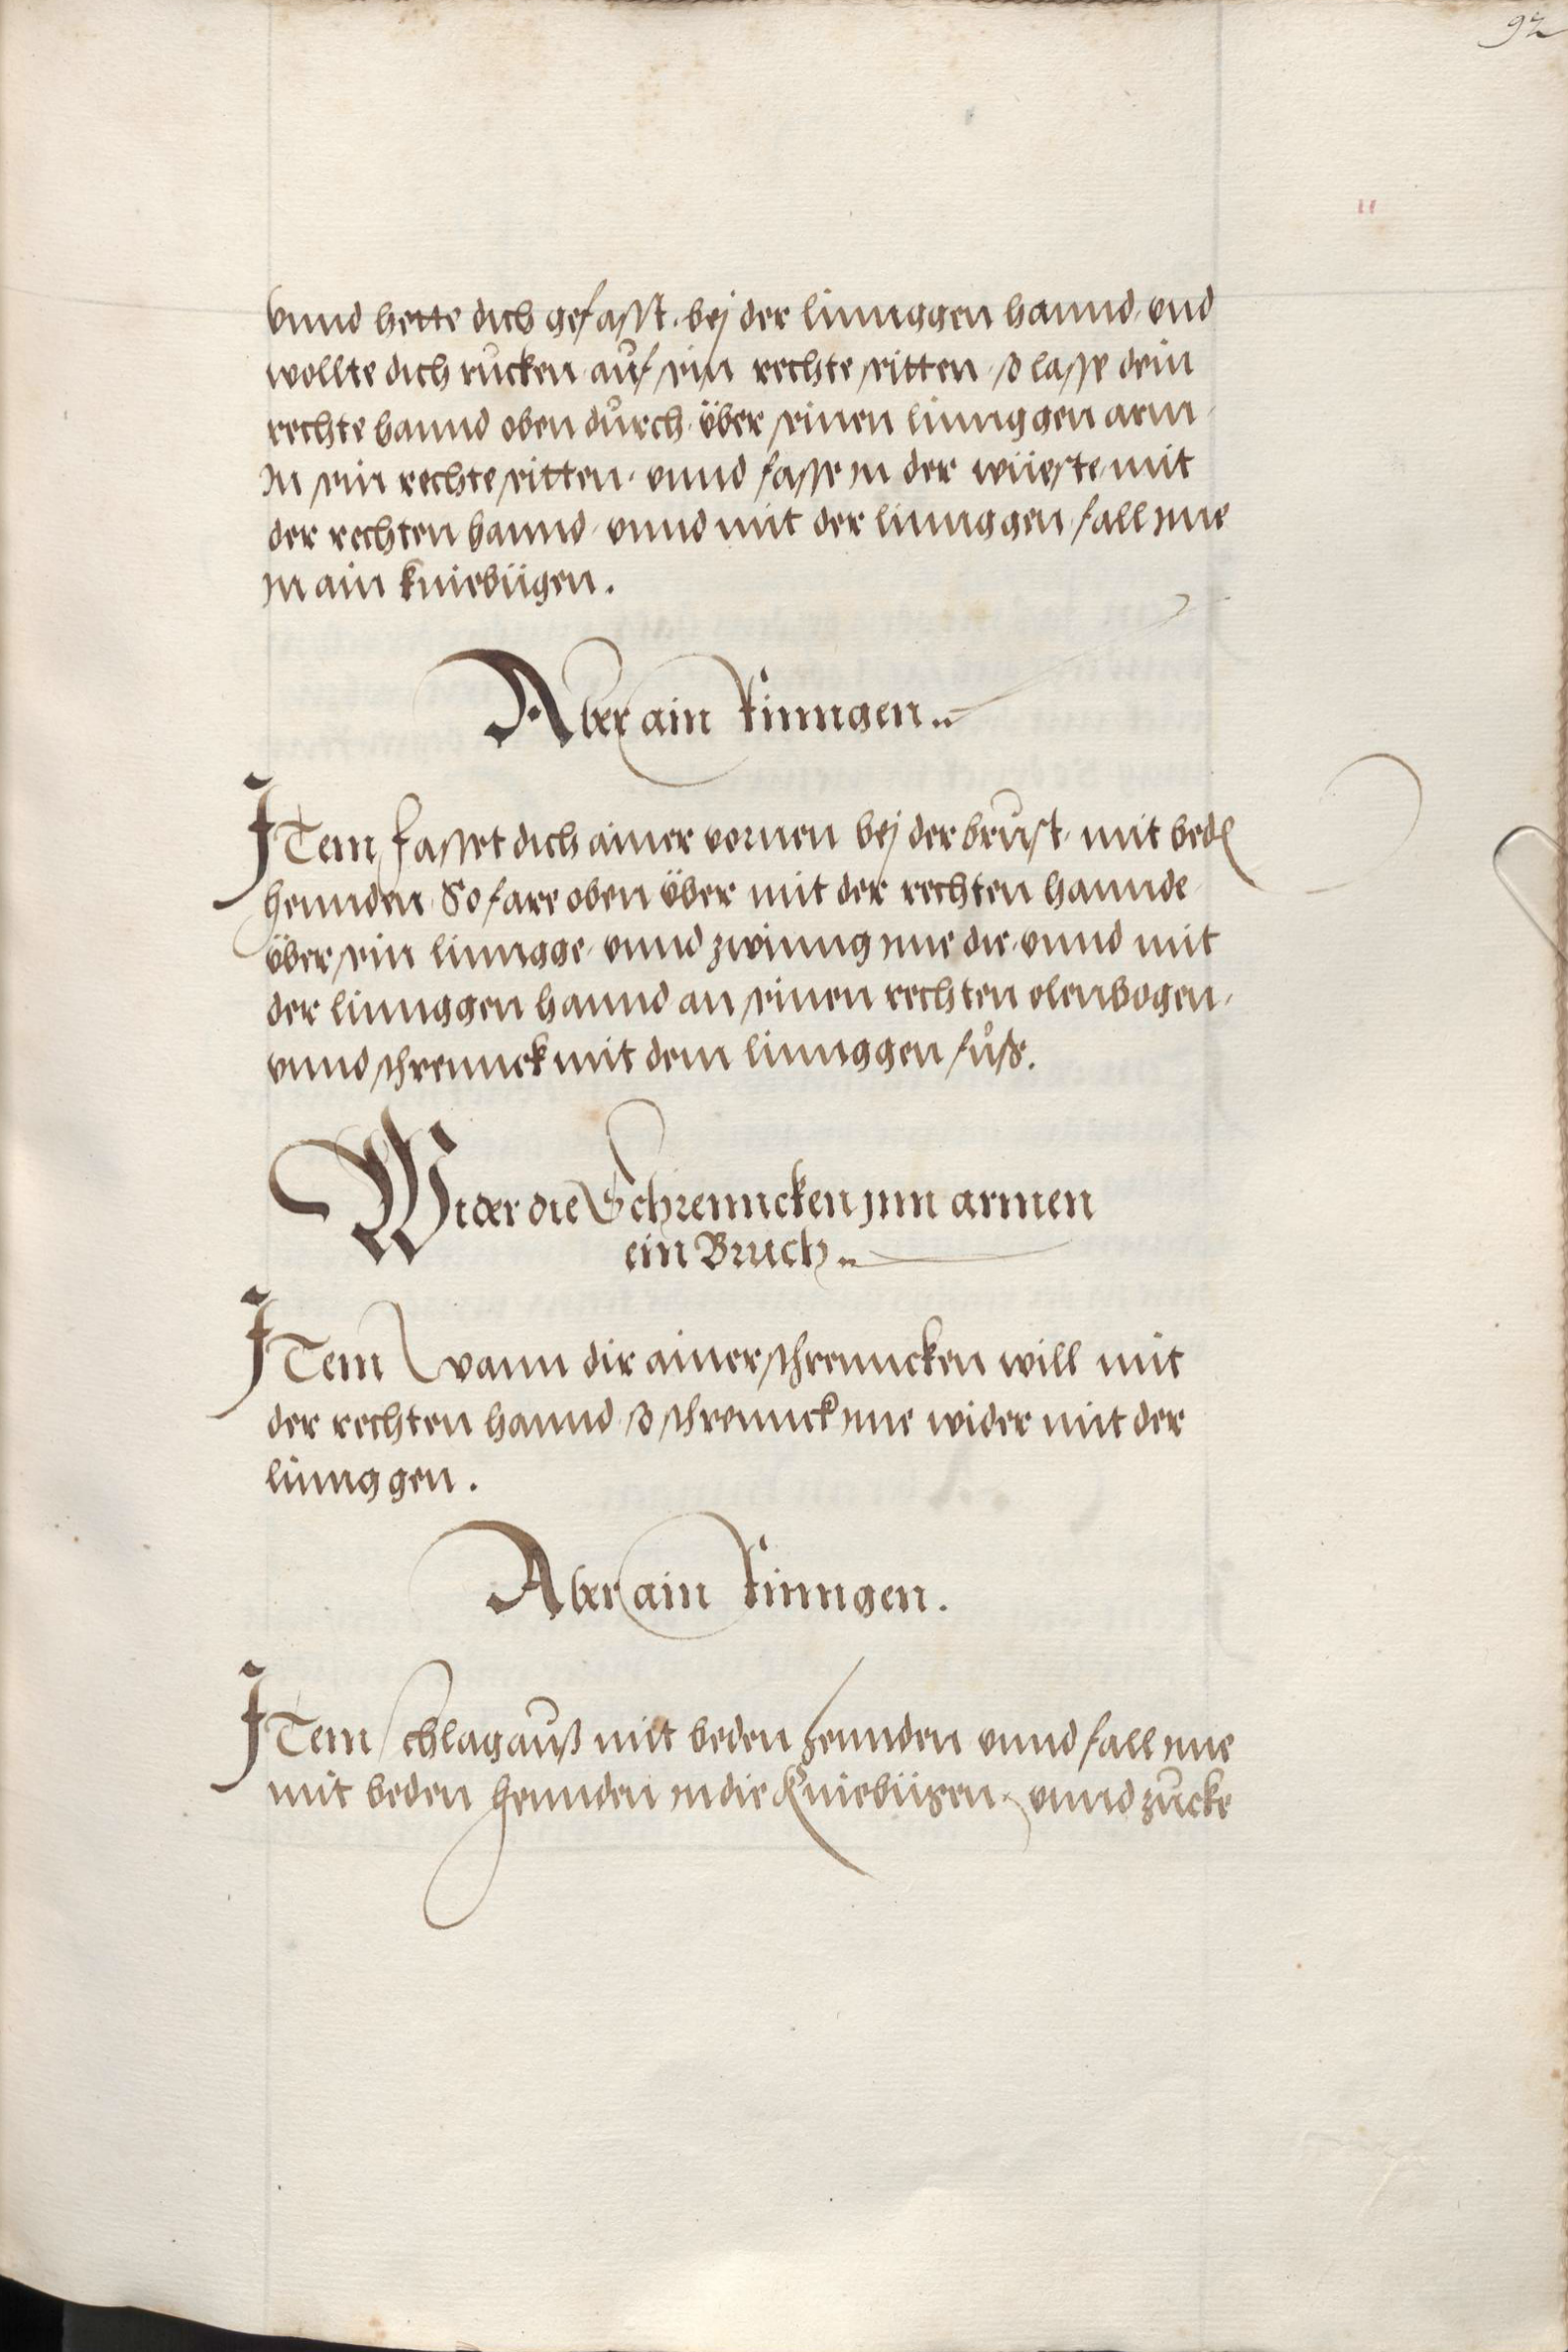 92
vnnd hette dich gefasst. bej der linnggen hannd, vnd
wollte dich rucken auf sein rechte seitten, so lasse dein
rechte hannd oben durch, über seinen linnggen arm,
Jn sein rechte seitten, vnnd fasse jn der wüeste, mit
der rechten hannd, vnnd mit der linnggen, fall jme
jn ain kniebügen.
Aber ain Rinngen..
JTem fasset dich ainer vornen bej der brust, mit beden
hennden, So fare oben über mit der rechten hannde,
über sein lingge, vnnd zwinng jme die, vnnd mit
der linnggen hannd an seinen rechten elenbogen,
vnnd schrennck mit dem linnggen fůß.
Wider die Schrenncken jnn armen
ein Bruch..
JTem wann dir ainer schrenncken will mit
der rechten hannd, so schrennck jme wider mit der
linnggen.
Aber ain Rinngen.
JTem schlag auß mit beden hennden vnnd fall jme
mit beden hennden jn die Kniebügen, vnnd zucke